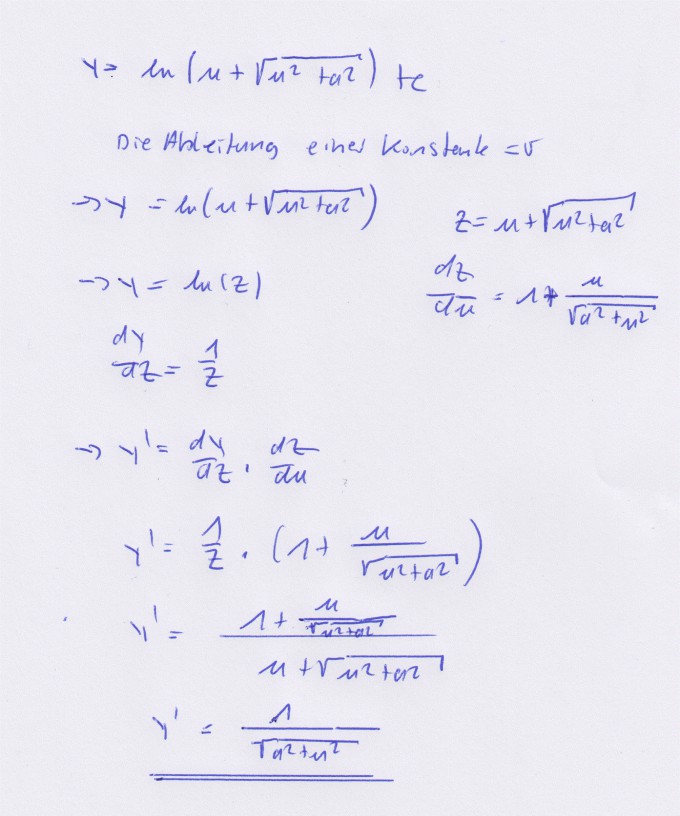 y = ln (u + √(u² + a²)) + c
Die Ableitung einer Konstante = 0
→ y = ln (u + √(u² + a²))
z = u + √(u² + a²)
→ y = ln (z)
dz/du = 1 + u/√(a² + u²)
dy/dz = 1/z
→ y' = dy/dz · dz/du
y' = 1/z · (1 + u/√(u² + a²))
y' = (1 + u/√(u² + a²)) / (u + √(u² + a²))
y' = 1/√(a² + u²)